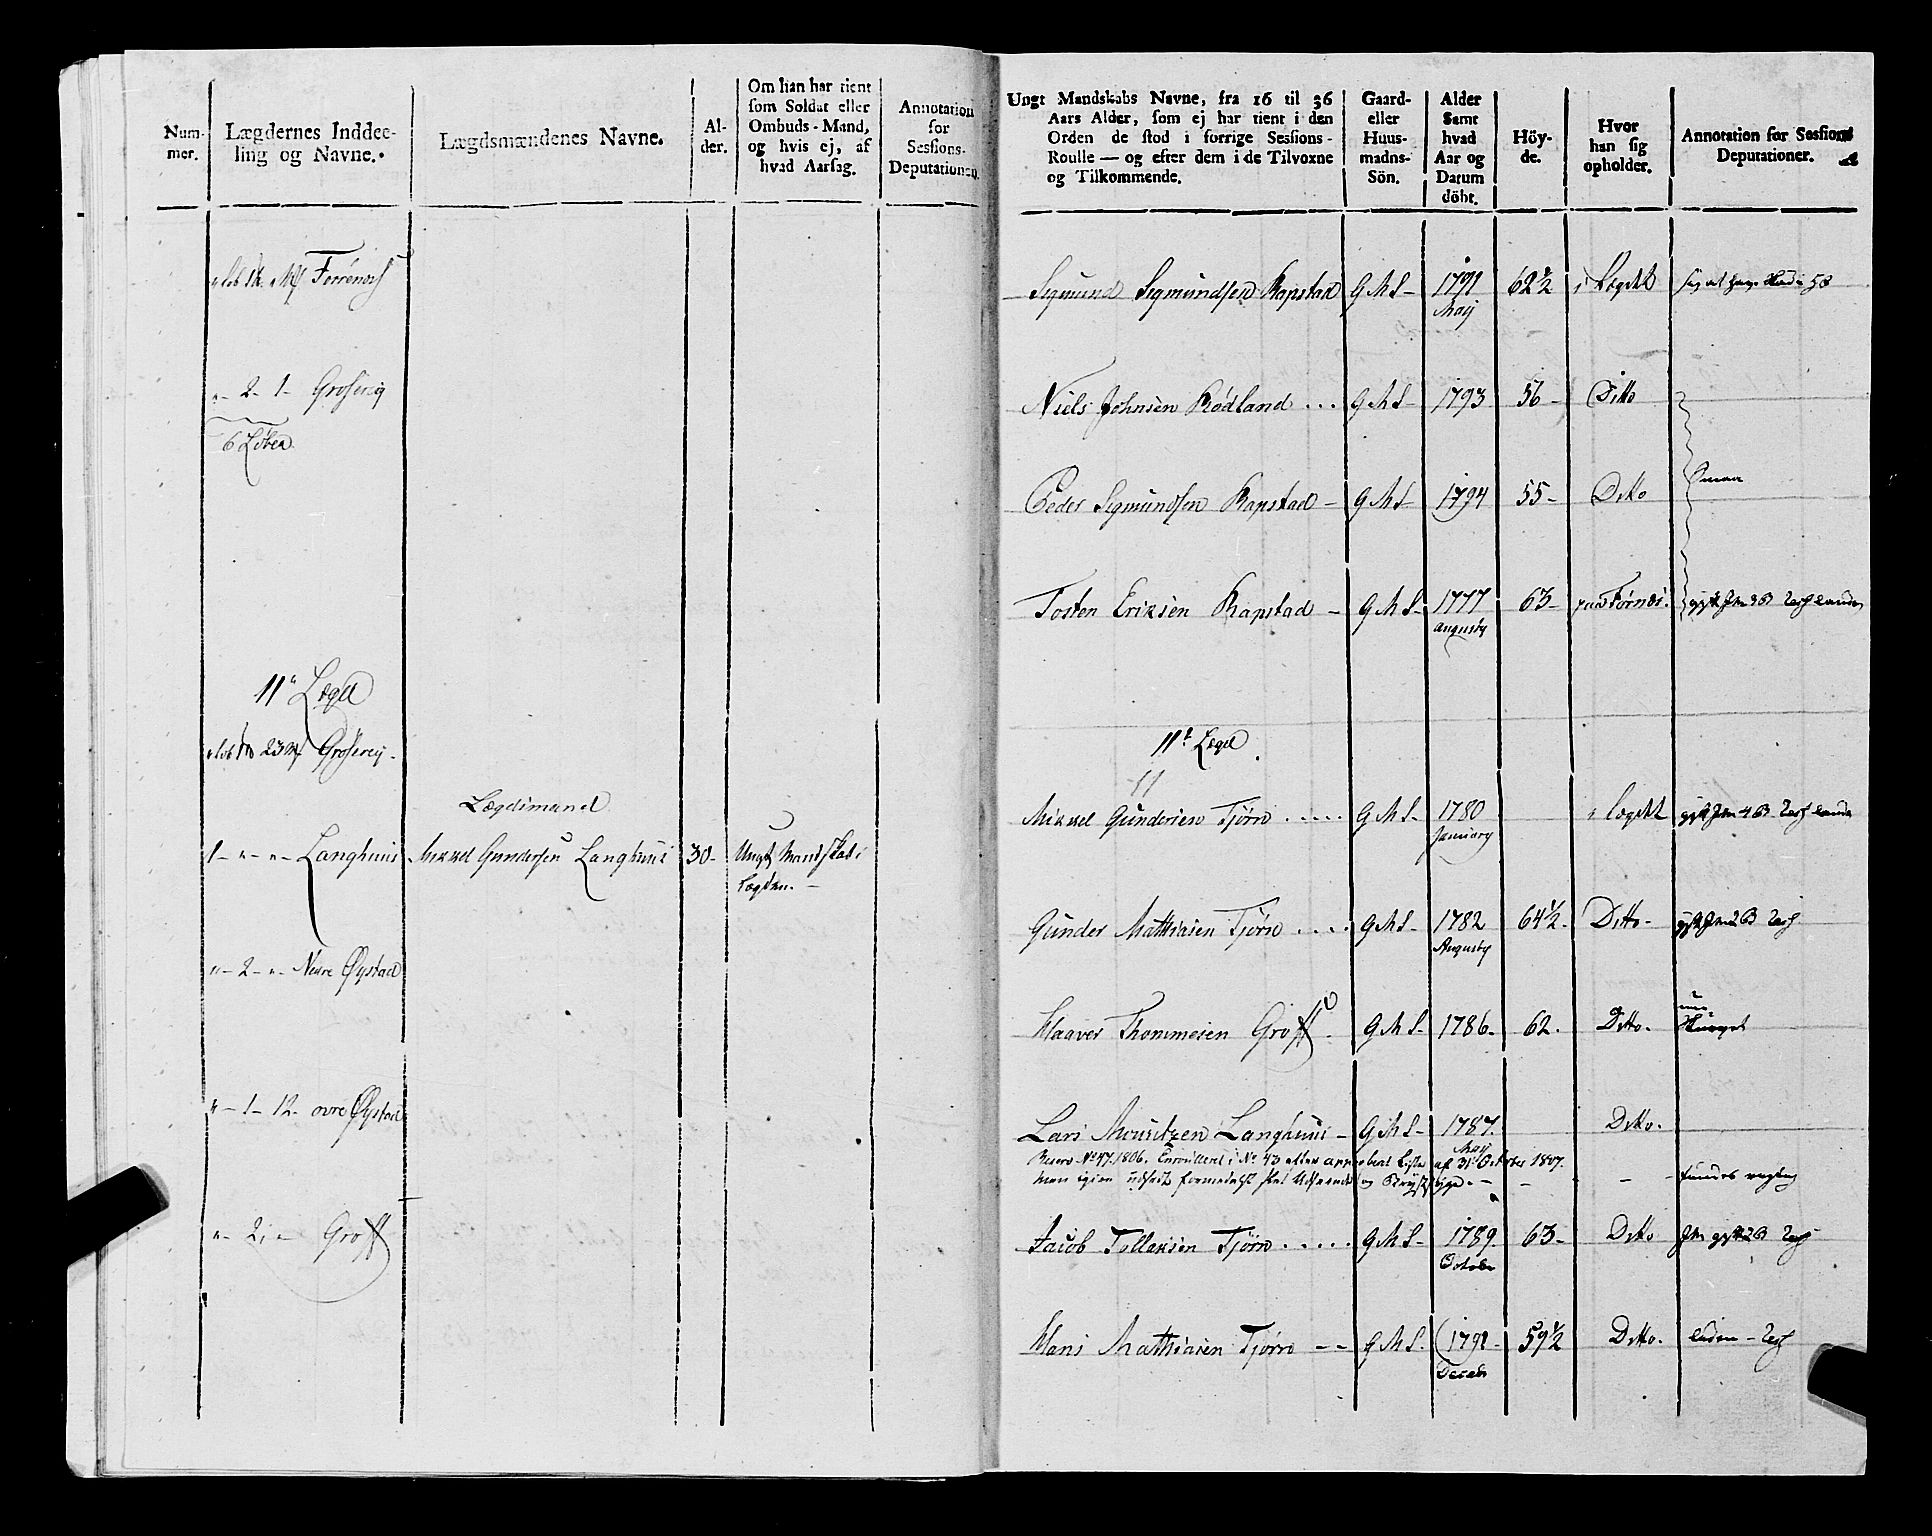 Num-
mer.
Lægdernes Inddee-
ling og Navne.
Lægdsmændenes Navne.
Al-
der.
Om han har tient
som Soldat eller
Ombuds-Mand,
og hvis ej, af
hvad Aarsag.
Annotation
for
Sessions-
Deputationen.
Førrenes
"- 2- 1- Groserig
6 Løber
11te Lægd
23 Groserej-
Lægdsmand
1- "- "- Langhuus Mikkel Gundersen Langhuus 30- Ungt Mandskab i
Lægden. -
"- 2- "- Nedre Øystad
"- 1- 12- ovre Øystad
"- 2, "- Groff
Ungt Mandskabs Navne, fra 16 til 36
Aars Alder, som ej har tient i den
Orden de stod i forrige Sessions-
Roulle — og efter dem i de Tilvoxne
og Tilkommende.
Gaard-
eller
Huus-
mands-
Sön.
Alder
Samt
hvad
Aar og
Datum
döbt.
Höy-
de.
Hvor
han sig
opholder.
Annotation for Sessions
Deputationer.
Sigmund Sigmundsen Rapstad G M S- 1791 62½ i Lægdet
Maij
Niels Johnsen Rødland ... G M S- 1793 56- Ditto
Peder Sigmundsen Rapstad - G M S- 1794 55- Ditto Smaa
Tosten Eriksen Rapstad - G M S- 1777 63- paa Førnes.
Augusty
11te Lægd
11
Mikkel Gundersen Tjørn ..... G M S- 1780 i Lægdet
January
Gunder Mathiasen Tjørn .... G M S- 1782 64½- Ditto-
Augusty
Haaver Thommesen Groff. G M S- 1786- 62. Ditto.
Lars Mouritzen Langhuus - G M S- 1787 Ditto.
Maij
Reserv No 47. 1806. Enroullent i No 43 efter approberet Liste af 31te October 1807.
men igien udsadt formedelst
Jacob Tellefsen Tjørn ..... G M S- 1789. 63- Ditto
October
Hans Mathiasen Tjørn -- G M S. 1791- 59½ Ditto.
Decebr